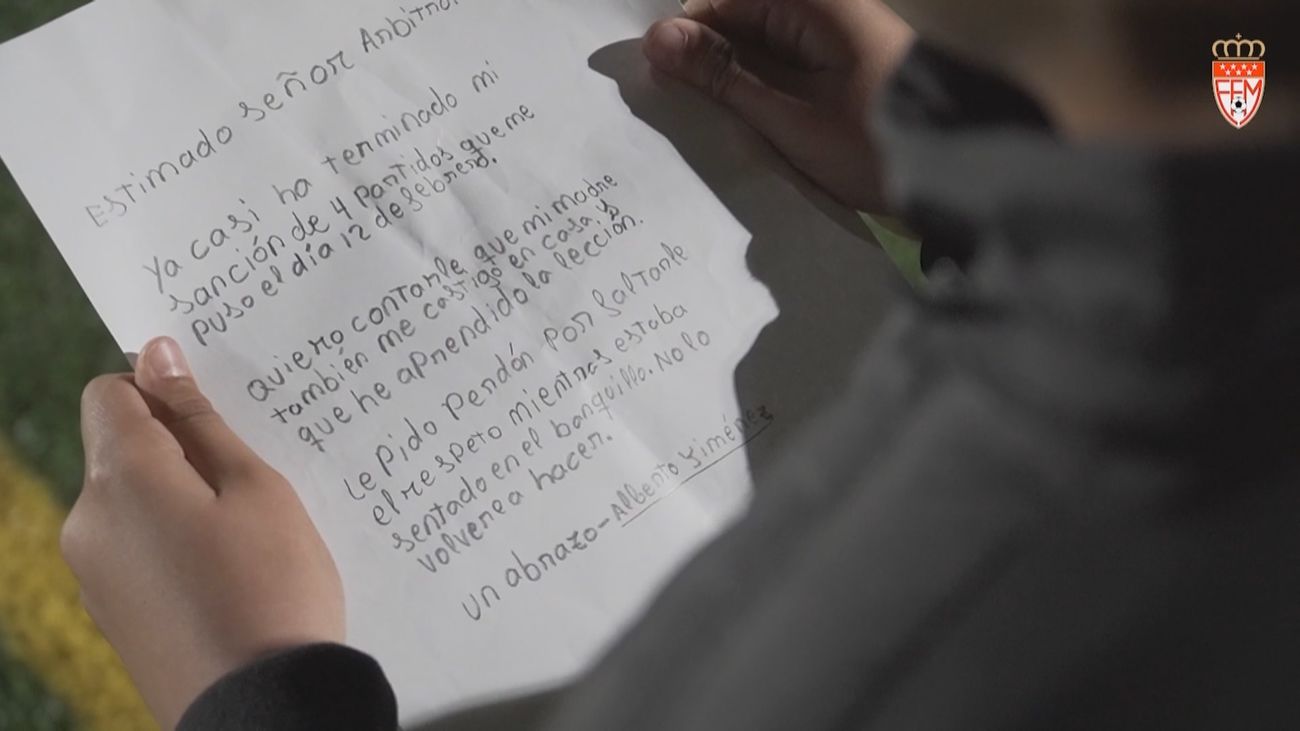 Estimado señor Arbitro.
Ya casi ha terminado mi
sanción de 4 partidos que me
puso el día 12 de febrero.
Quiero contarle que mi madre
también me castigó en casa, y
que he aprendido la lección.
Le pido perdón por faltarle
el respeto mientras estaba
sentado en el banquillo. No lo
volveré a hacer.
Un abrazo - Alberto Jiménez
FFM